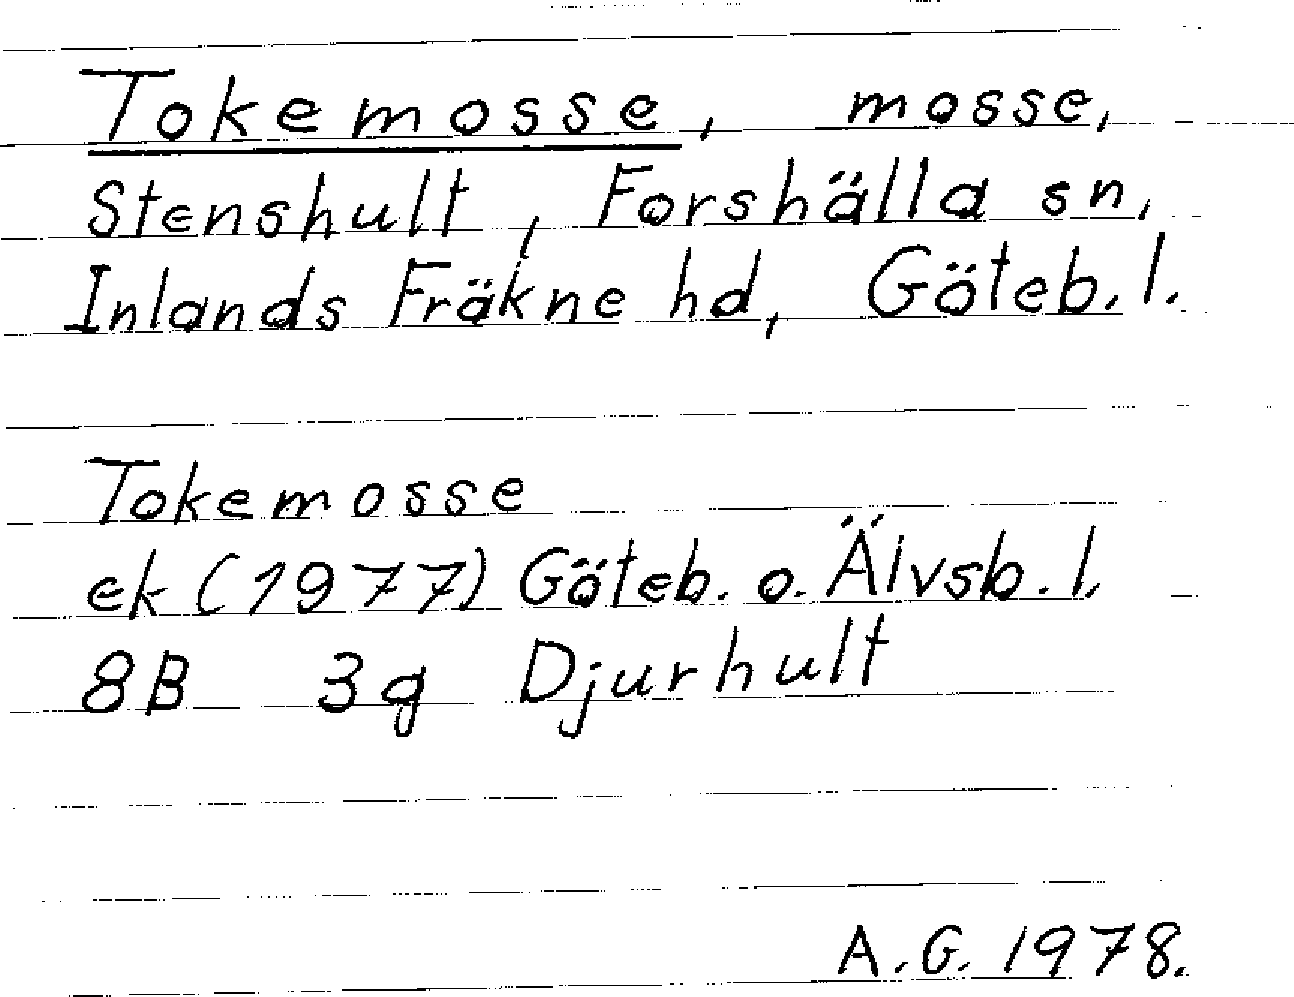 Tokemosse, mosse,
Stenshult, Forshälla sn,
Inlands Fräkne hd, Göteb. l.
Tokemosse
ek (1977) Göteb. o. Älvsb. l.
8B 3g Djurhult
A.G. 1978.